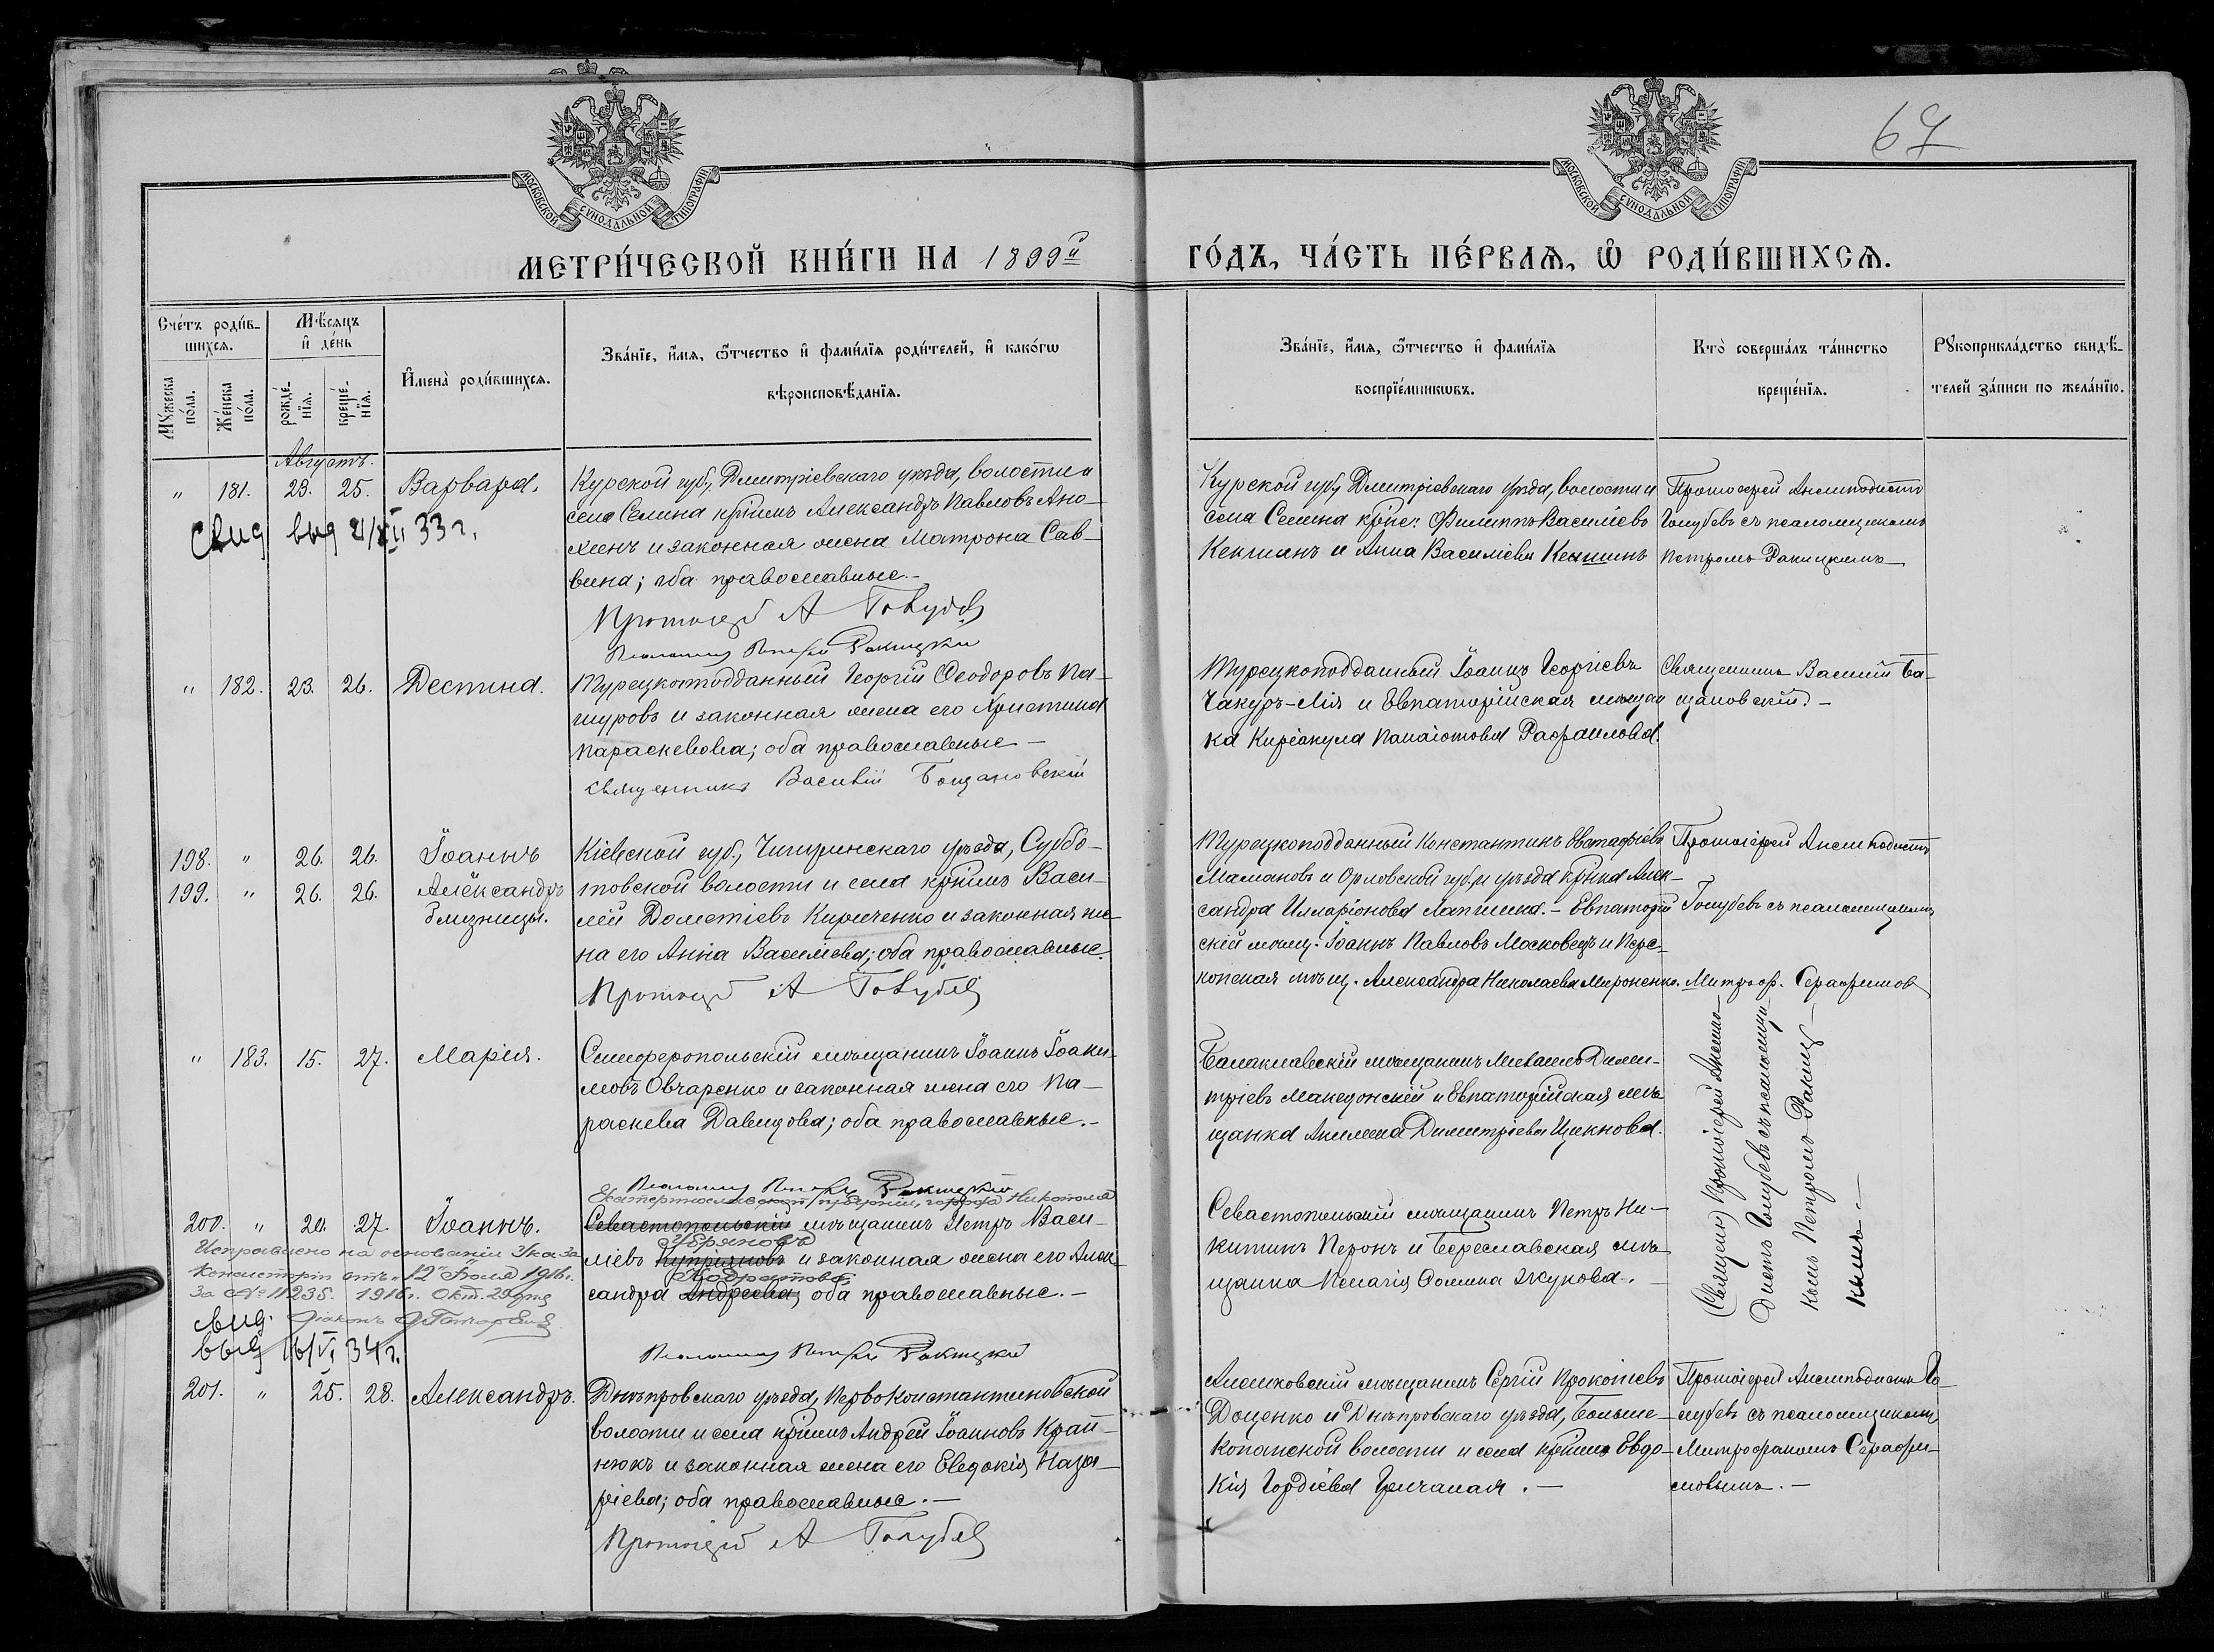 67
МОСКОВСКОЙ СѴНОДАЛЬНОЙ ТИПОГРАФІИ
МОСКОВСКОЙ СѴНОДАЛЬНОЙ ТИПОГРАФІИ
МЕТРИ́ЧЕСКОЙ КНИ́ГИ НА 1899й ГО́ДЪ, ЧА́СТЬ ПЕ́РВАѦ, Ѡ РОДИ́ВШИХСѦ.
Сче́тъ роди́в-
шихсѧ.
Мѣ́сѧцъ
и҆ де́нь
Мꙋ́жеска
по́ла.
Же́нска
по́ла.
рожде́-
нїѧ.
креще́-
нїѧ.
И҆мена̀ роди́вшихсѧ.
Зва́нїе, и҆́мѧ, ѻ҆́тчество и҆ фами́лїѧ роди́телей, и҆ како́гѡ
вѣроисповѣ́данїѧ.
Зва́нїе, и҆́мѧ, ѻ҆́тчество и҆ фами́лїѧ
воспрїе́мникѡвъ.
Кто̀ соверша́лъ та́инство
креще́нїѧ.
Рꙋкоприкла́дство свидѣ́-
телей за́писи по жела́нїю.
Августъ.
" 181. 23. 25. Варвара.
Курской губ., Дмитріевскаго уѣзда, волости и
села Селина крѣнъ Александръ Павловъ Ано-
хинъ и законная жена Матрона Сав-
вина; оба православные.-
Протоіерей А Голубевъ
Псаломщ Петръ Ракицкій
Курской губ, Дмитріевскаго уѣзда, волости и
села Селина крѣс: Филиппъ Василіевъ
и Анна Василіева
Протоіерей Анемподистъ
Голубевъ съ псаломщикомъ
Петромъ Ракицкимъ
Свид выд 33 г.
" 182. 23. 26. Деспина.
Турецкоподданный Георгій Ѳеодоровъ Па-
шуровъ и законная жена его Христина
Параскевова; оба православные -
Священникъ Василій Бощановскій
Турецкоподданный Іоаннъ Георгіевъ
Чакуръ- и Евпаторійская мѣщан
ка Киріакула Панаіотова Рафаилова.
Священникъ Василій Бо-
щановскій. -
198. " 26. 26. Іоаннъ
199. " 26. 26. Александръ
близнецы.
Кіевской губ., Чигиринскаго уѣзда, Суббо-
товской волости и села крѣнъ Васи-
лій Дометіевъ Кириченко и законная же-
на его Анна Василіева; оба православные.
Протоіерей А Голубевъ
Турецкоподданный Константинъ Евстафіевъ
Мамановъ и Орловской губ. и уѣзда крѣнка Алек-
сандра Илларіонова Лапшина. - Евпаторій
скій мѣщ. Іоаннъ Павловъ Московецъ и Пере-
копская мѣщ. Александра Николаева Мироненко.
Протоіерей Анемподистъ
Голубевъ съ псаломщикомъ
Митроф. Серафимов
" 183. 15. 27. Марія.
Симферопольскій мѣщанинъ Іоаннъ Іоаки-
мовъ Овчаренко и законная жена его Па-
раскева Давидова; оба православные.-
Псаломщ Петръ Ракицкій
Балаклавскій мѣщанинъ Михаилъ Дими-
тріевъ Македонскій и Евпаторійская мѣ
щанка Акилина Димитріева
(Священ) Протоіерей Анемпо-
дистъ Голубевъ съ псаломщи-
комъ Петромъ Ракиц-
кимъ.-
200. " 20. 27. Іоаннъ.
Екатеринославской губерніи, города Никополя
Севастопольскій мѣщанинъ Петръ Васи-
ліевъ Купріяновъ и законная жена его Алек-
сандра Андреева; оба православные.-
Псаломщ Петръ Ракицкій
Севастопольскій мѣщанинъ Петръ Ни-
китинъ Перонъ и Береславская мѣ
щанка Пелагія Ѳомина Жукова. -
Исправлено на основаніи Указа
Консисторіи отъ 12 Іюля 1916 г.
за № 11235. 1916 г. Окт. 29 дня
свид.
выд 34 г.
201. " 25. 28. Александръ.
Днѣпровскаго уѣзда, Первоконстантиновской
волости и села крѣнъ Андрей Іоанновъ Край-
нюкъ и законная жена его Евдокія Наза-
ріева; оба православные. -
Протоіерей А Голубевъ
Алешковскій мѣщанинъ Сергій Прокопіевъ
Доценко и Днѣпровскаго уѣзда, Больше-
Копанской волости и села крѣнка Евдо-
кія Гордіева Гричаная . -
Протоіерей Анемподистъ Го-
лубевъ съ псаломщикомъ
Митрофаномъ Серафи-
мовымъ. -